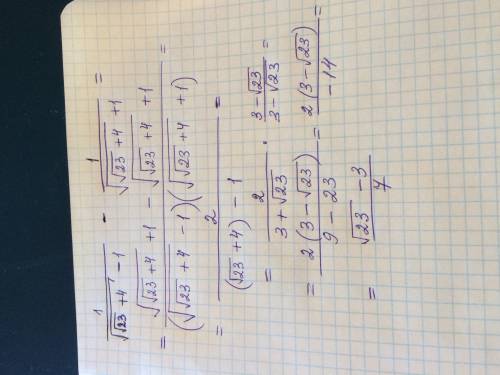 1/(√(√23 + 4) − 1) − 1/(√(√23 + 4) + 1) =
= (√(√23 + 4) + 1 − √(√23 + 4) + 1)/((√(√23 + 4) − 1)(√(√23 + 4) + 1)) =
= 2/((√23 + 4) − 1) =
= 2/(3 + √23) · (3 − √23)/(3 − √23) =
= 2(3 − √23)/(9 − 23) = 2(3 − √23)/(−14) =
= (√23 − 3)/7